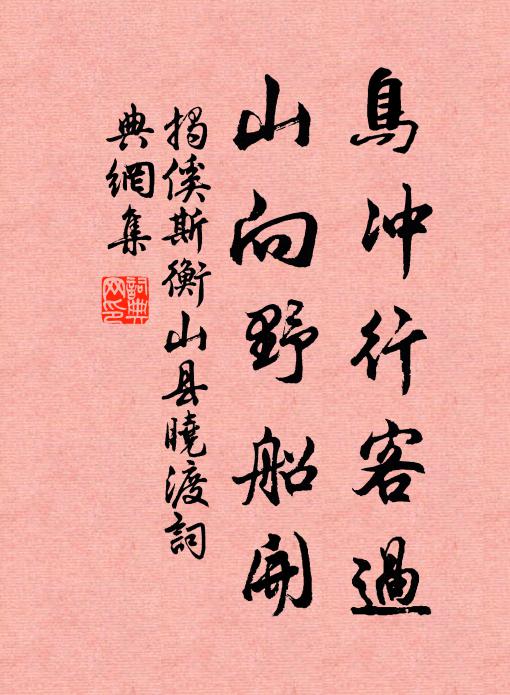 鳥沖行客過
山向野船開
揭傒斯衡山县曉渡詞
典網集
詞典
网印